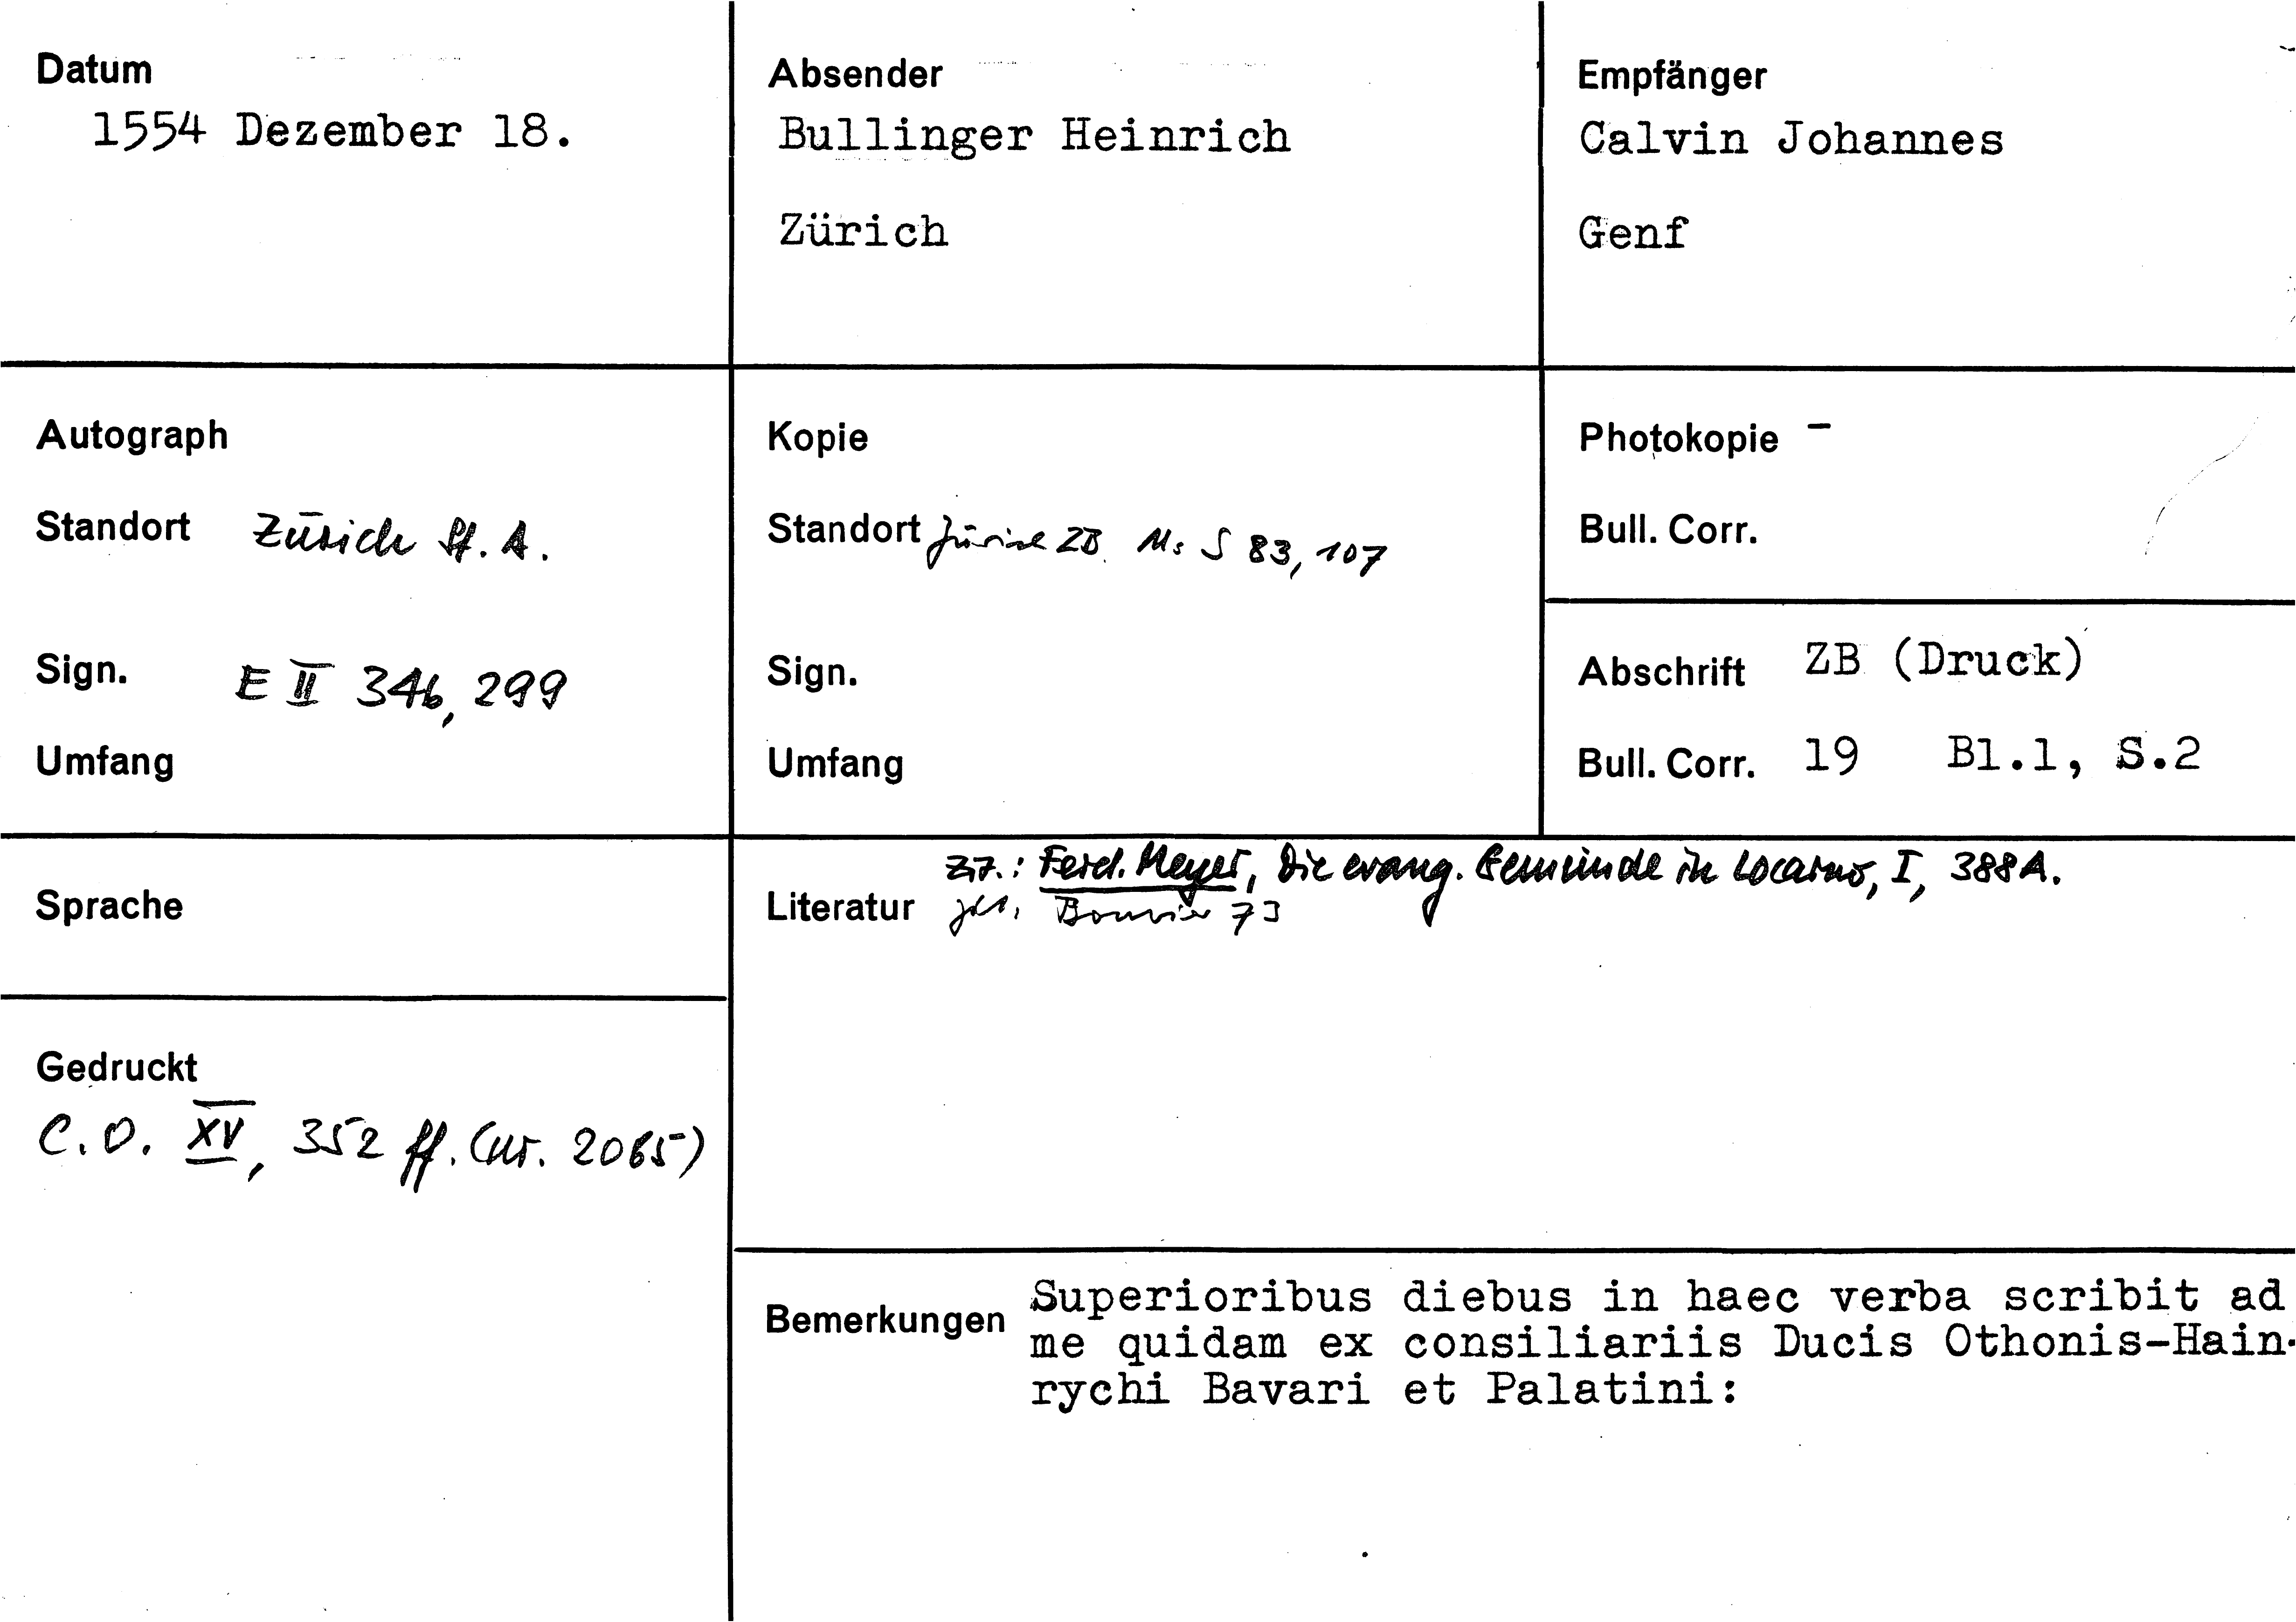 Datum
1554 Dezember 18.
Absender
Bullinger Heinrich
Zürich
Empfänger
Calvin Johannes
Genf
Autograph
Standort Zürich St. A.
Sign. E II 346, 299
Umfang
Kopie
Standort Zürich ZB. Ms S 83, 107
Sign.
Umfang
Photokopie -
Bull. Corr.
Abschrift ZB (Druck)
Bull. Corr. 19 Bl.1, S.2
Sprache
Gedruckt
C.O. XV, 352 ff. (nr. 2065)
Zit.: Ferd. Meyer, Die evang. Gemeinde in Locarno, I, 388A.
Literatur Bouvier 73
Bemerkungen Superioribus diebus in haec verba scribit ad
me quidam ex consiliariis Ducis Othonis-Hain-
rychi Bavari et Palatini: